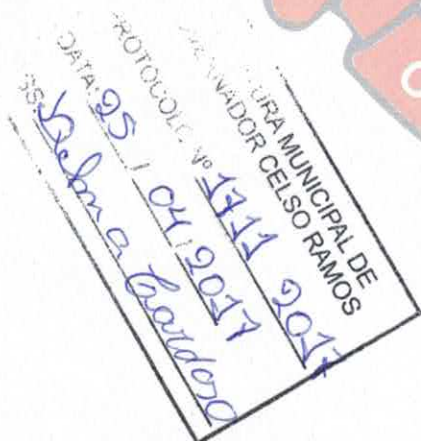 URA MUNICIPAL DE
NADOR CELSO RAMOS
ROTOCOLO Nº 1711 2017
DATA 25 / 04 / 2017
SS. Cardoso